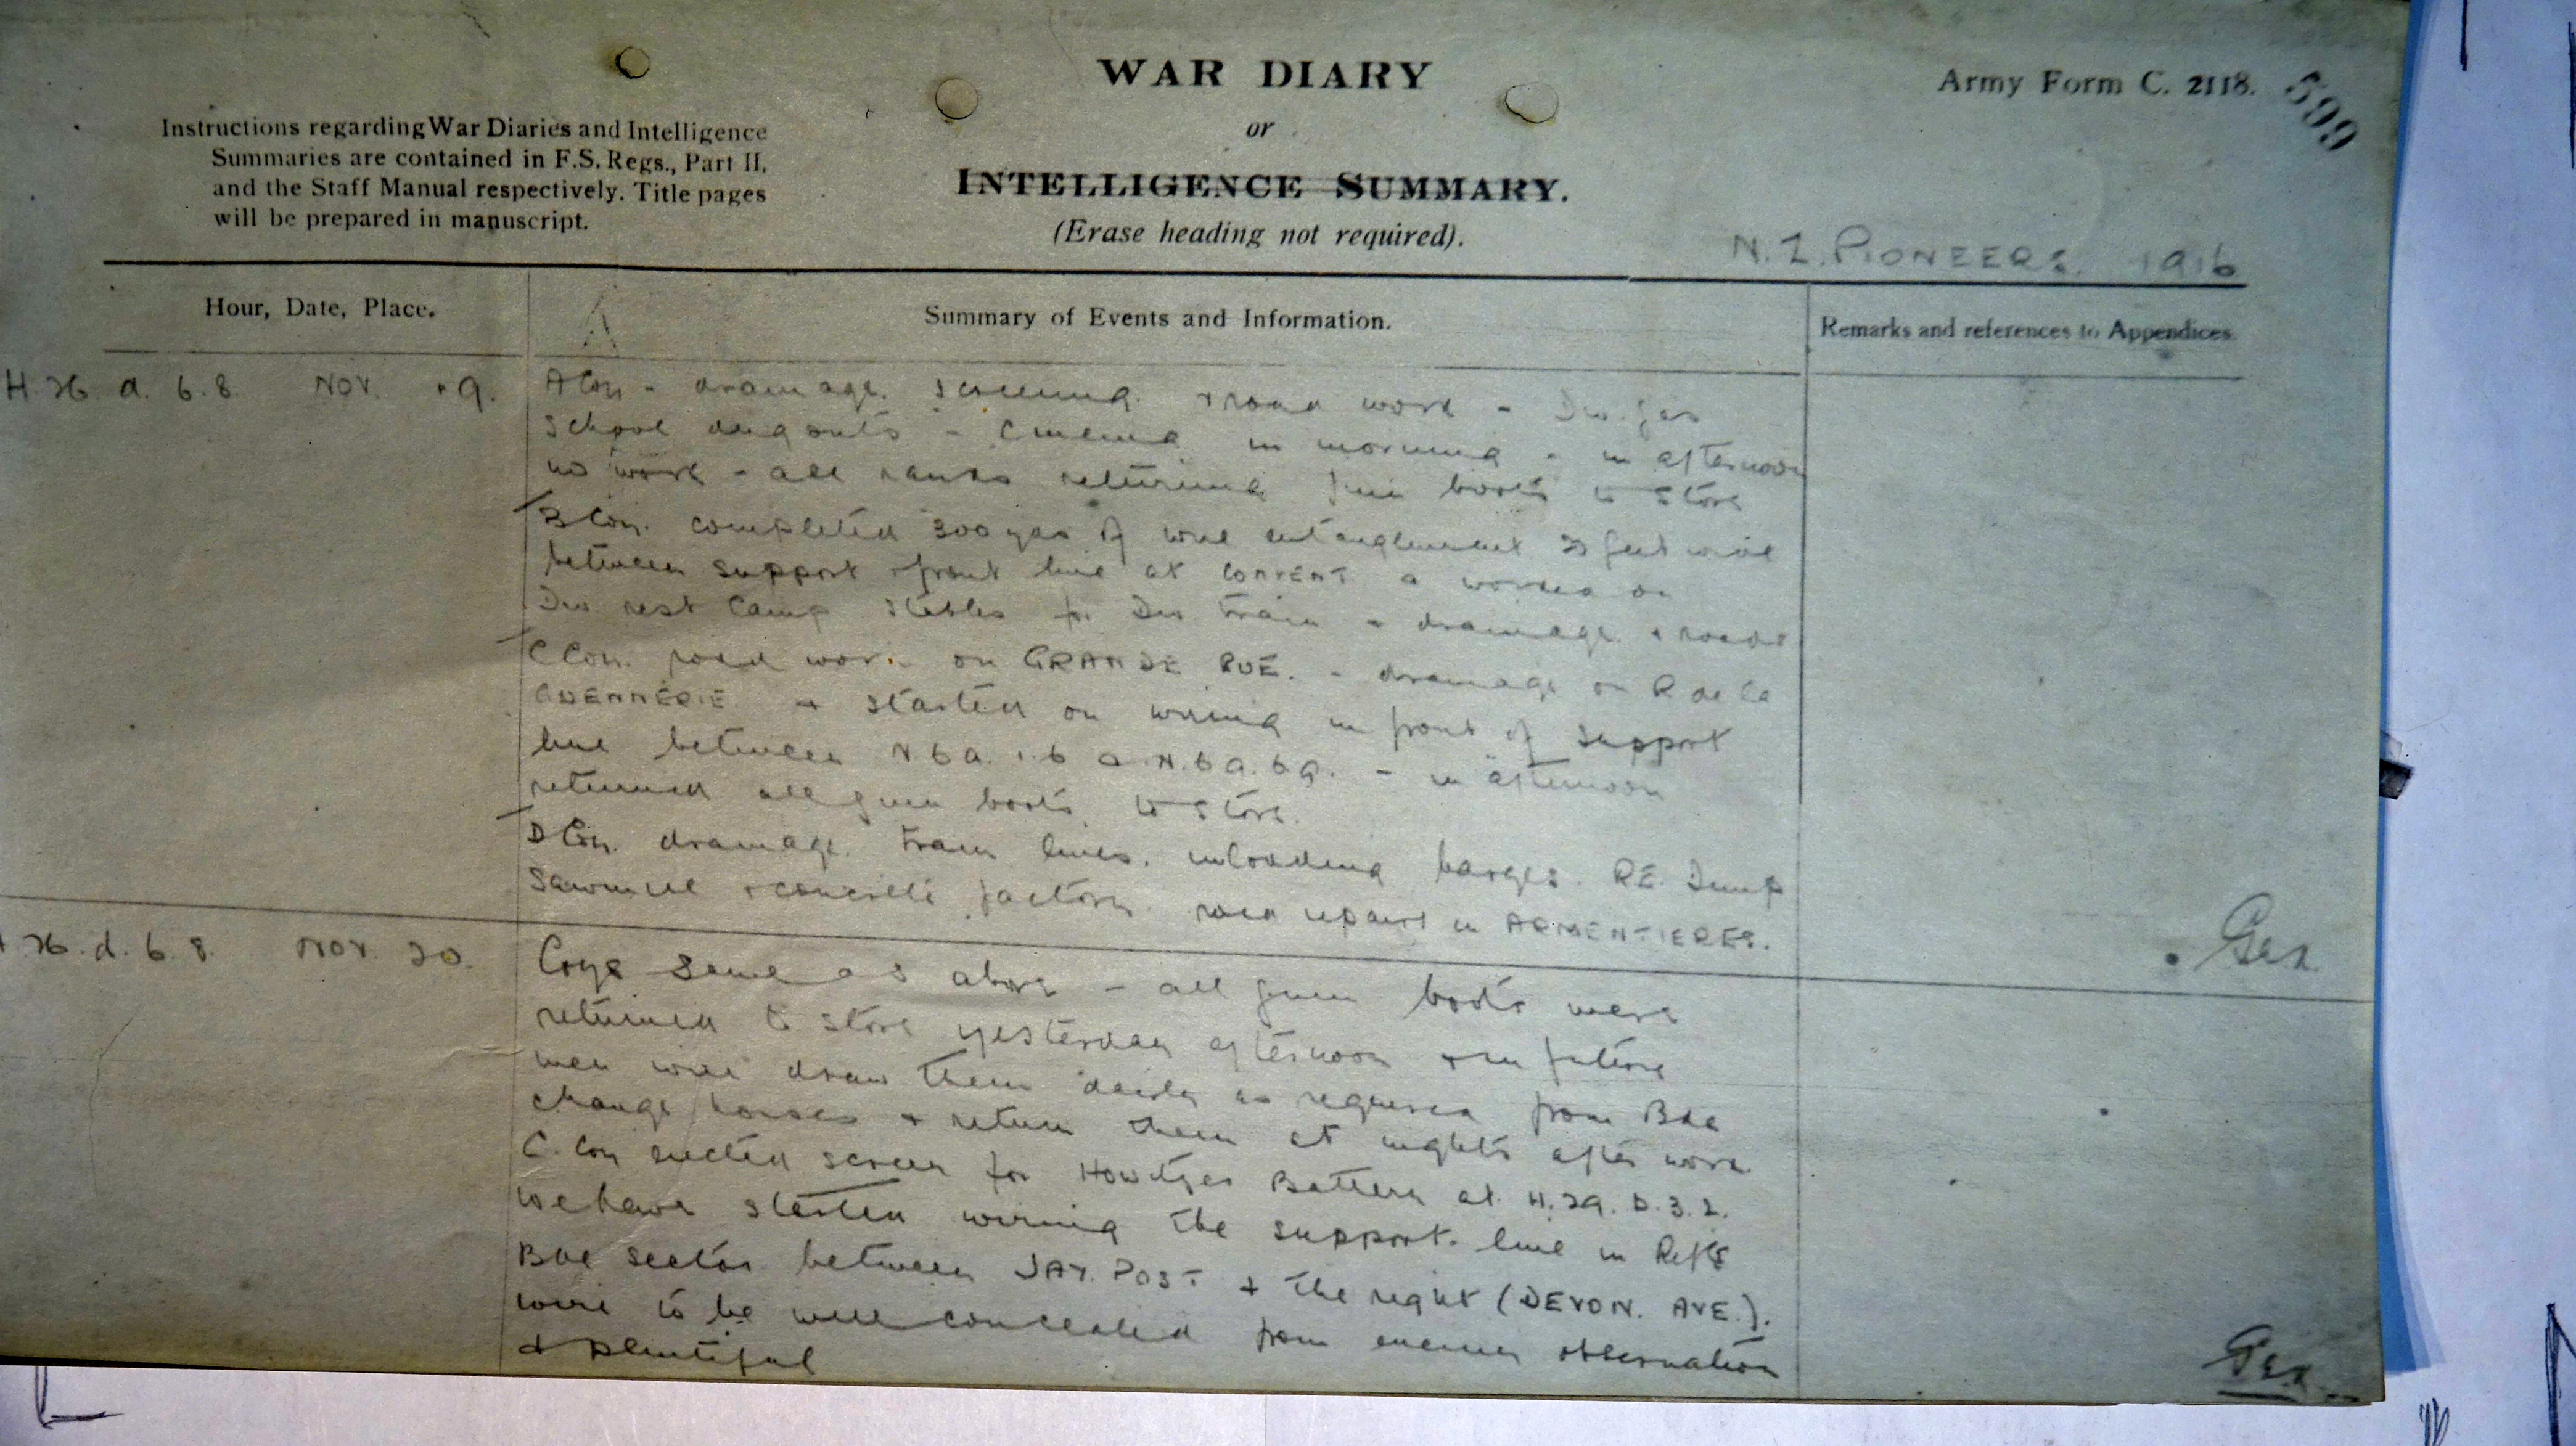 WAR DIARY
or
INTELLIGENCE SUMMARY.
(Erase heading not required).
Army Form C. 2118.
699
Instructions regarding War Diaries and Intelligence
Summaries are contained in F.S. Regs., Part II,
and the Staff Manual respectively. Title pages
will be prepared in manuscript.
N.Z. PIONEERS. 1916
Hour, Date, Place.
Summary of Events and Information.
Remarks and references to Appendices
H. 26. d. 6. 8 Nov. 19.
A Coy - drainage. screening. & road work - Div. gas
school dug outs - cinema in morning - in afternoon
no work - all ranks returning gum boots to store
B Coy. completed 300 yds of wire entanglement 20 feet wide
between support & front line at CONVENT & worked on
Div rest Camp stables for Div Train & drainage & roads
C Coy. road work on GRANDE RUE. - drainage on R de la
& started on wiring in front of support
line between N. 6 a. 1. 6 & N. 6 a. 6. 9. - in afternoon
returned all gum boots to store.
D Coy. drainage. tram lines. unloading barges. RE. Dump
Sawmill & concrete factory. road repairs in ARMENTIERES.
H. 26. d. 6. 8. Nov. 20.
Coys same as above - all gum boots were
returned to store yesterday afternoon & in future
men will draw them daily as required from Bde
change houses & return them at nights after work
C. Coy erected screen for Howitzer Battery at H. 29. D. 3. 2.
We have started wiring the support line in Right
Bde sector between JAY. POST & the right (DEVON. AVE.).
wire to be well concealed from enemy observation
& plentiful